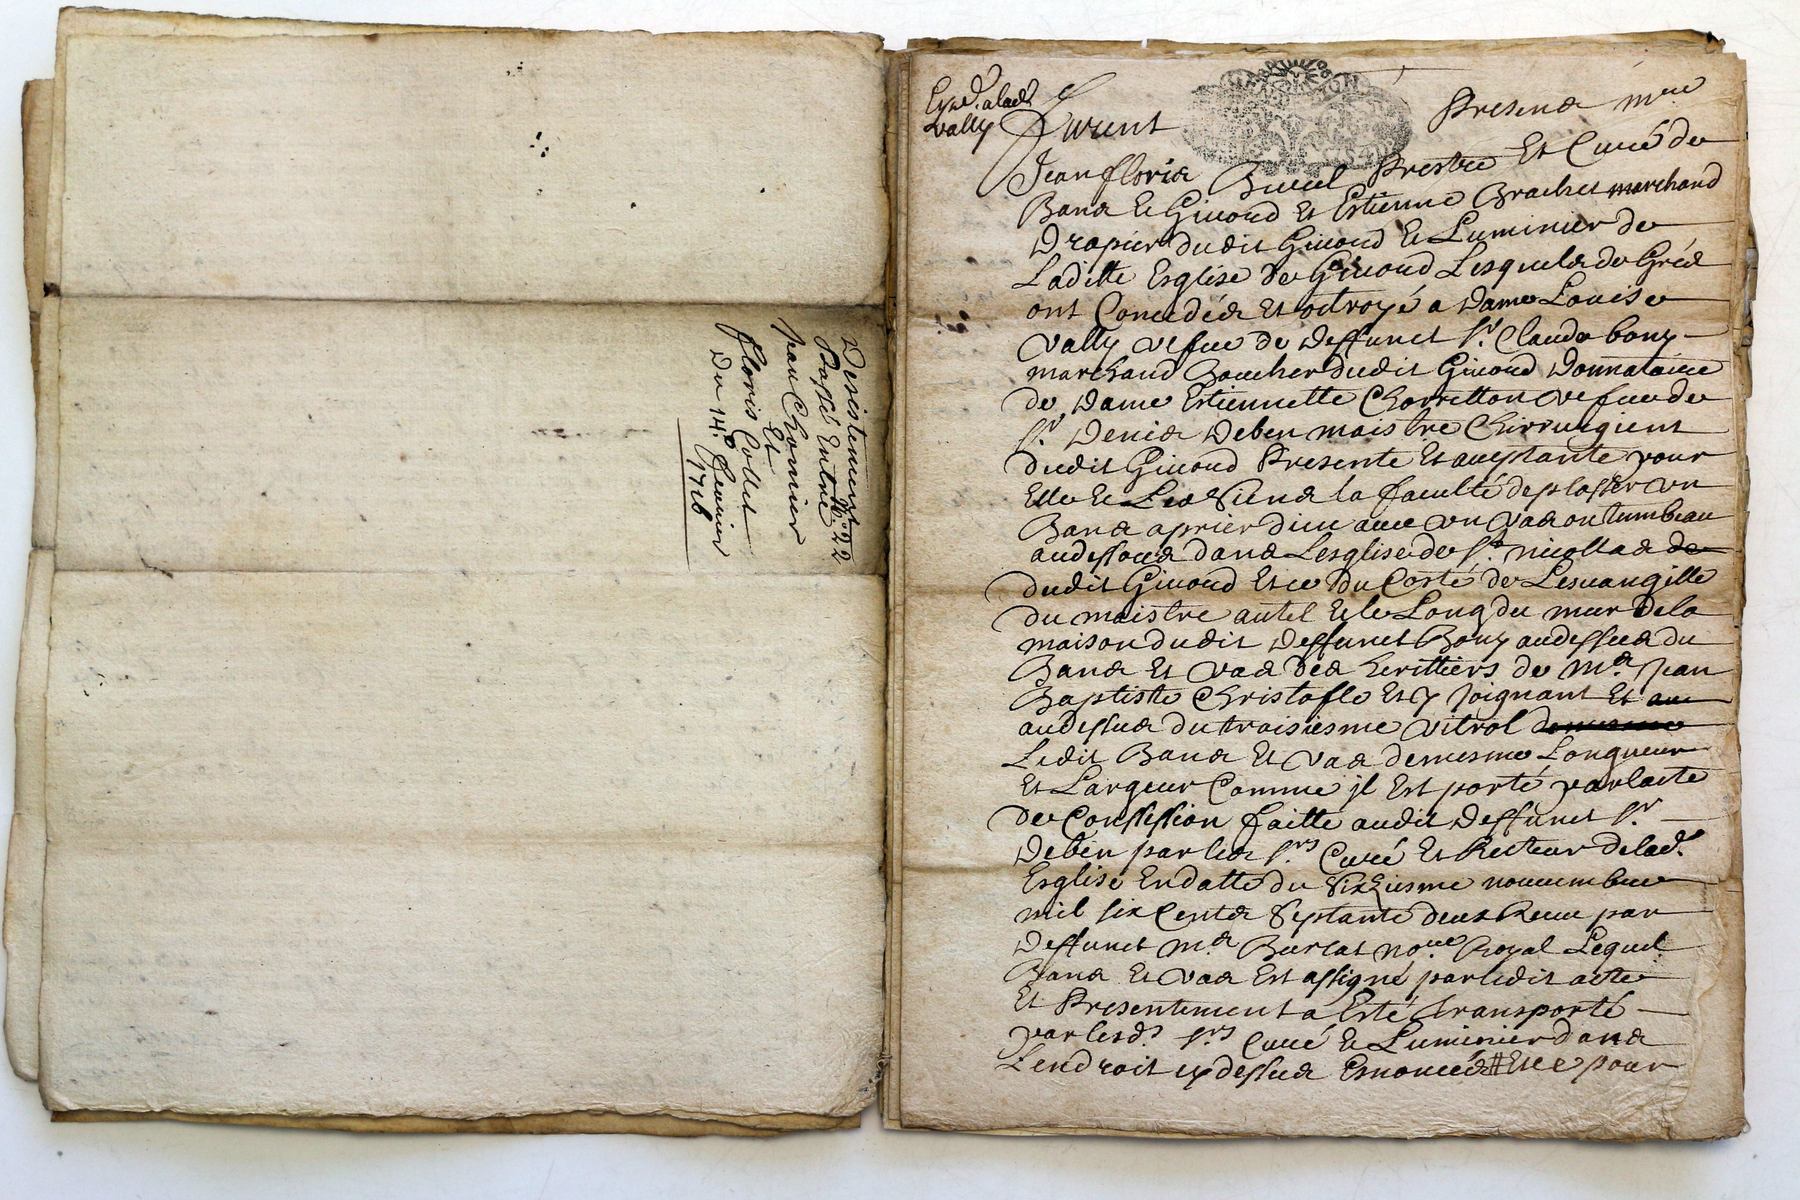 Desistement
N.° 22
Passé Entre
Jean Chomier
Et
floris Collet
Du 14.e Feurier
1716
Exp.d. a lad.e
Vally
Furent Presens m.re
Jean floris Prestre Et Curé de
Bans Et Giuord Et Estienne Brachet marchand
Drapier dudit Giuord Et Luminier de
Laditte Esglise de Giuord Lesquels de Grés
ont Concedés Et octroyé a Dame Louise
Vally vefue de Deffunct S.r Claude bony
marchand Boucher dudit Giuord Donnataire
de Dame Estiennette Chorretton vefue de
S.r Denis Deben maistre Chirrurgient
dudit Giuord Presente Et aceptante pour
Elle Et Les Siens la faculté de plasser un
Bans a prier dieu auec un Vas ou tumbeau
audessous dans Lesglise de S.t nicollas de
dudit Giuord Et ce du Costé de Lesuangille
du maistre autel Et le Long du mur de la
maison dudit Deffunct Bony audessus du
Bans Et Vas des heritiers de M.e Jean
Baptiste Christofle Et y Joignant Et au
audessus du troisiesme vitrol
Ledit Bans Et Vas de mesme Longueur
Et Largeur Comme jl Est porté par lacte
de Consession faitte audit Deffunct S.r
Deben par les S.rs Curé Et Recteur de lad.e
Esglise En datte du Sixiesme nouembre
mil six Cents Septante deux Receu par
Deffunct M.e Burlat no.re Royal Lequel
Bans Et Vas Est assigné par ledit acte
Et Presentement a Esté Transporté
par lesd.s S.rs Curé Et Luminier dans
Lendroit cy dessus Enoncés # Et ce pour